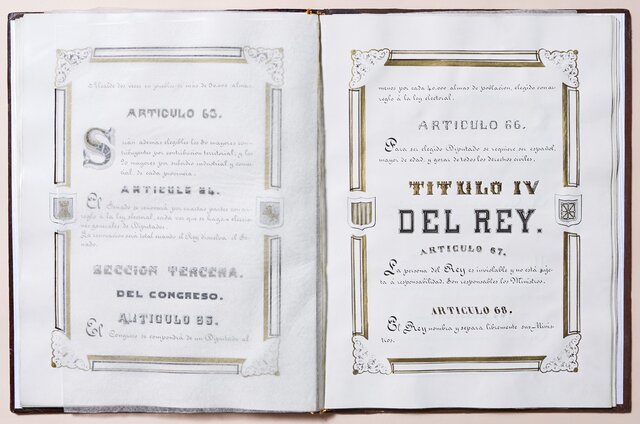 Alcalde dos veces en pueblos de mas de 30.000 almas.
ARTICULO 63.
Serán además elegibles los 50 mayores con-
tribuyentes por contribucion territorial, y los
20 mayores por subsidio industrial y comer-
cial de cada provincia.
ARTICULO 64.
El Senado se renovará por cuartas partes con ar-
reglo á la ley electoral, cada vez que se hagan eleccio-
nes generales de Diputados.
La renovacion será total cuando el Rey disuelva el Se-
nado.
SECCION TERCERA.
DEL CONGRESO.
ARTICULO 65.
El Congreso se compondrá de un Diputado al
menos por cada 40.000 almas de poblacion, elegido con ar-
reglo á la ley electoral.
ARTICULO 66.
Para ser elegido Diputado se requiere ser español,
mayor de edad, y gozar de todos los derechos civiles.
TITULO IV
DEL REY.
ARTICULO 67.
La persona del Rey es inviolable y no está suje-
ta á responsabilidad. Son responsables los Ministros.
ARTICULO 68.
El Rey nombra y separa libremente sus Minis-
tros.